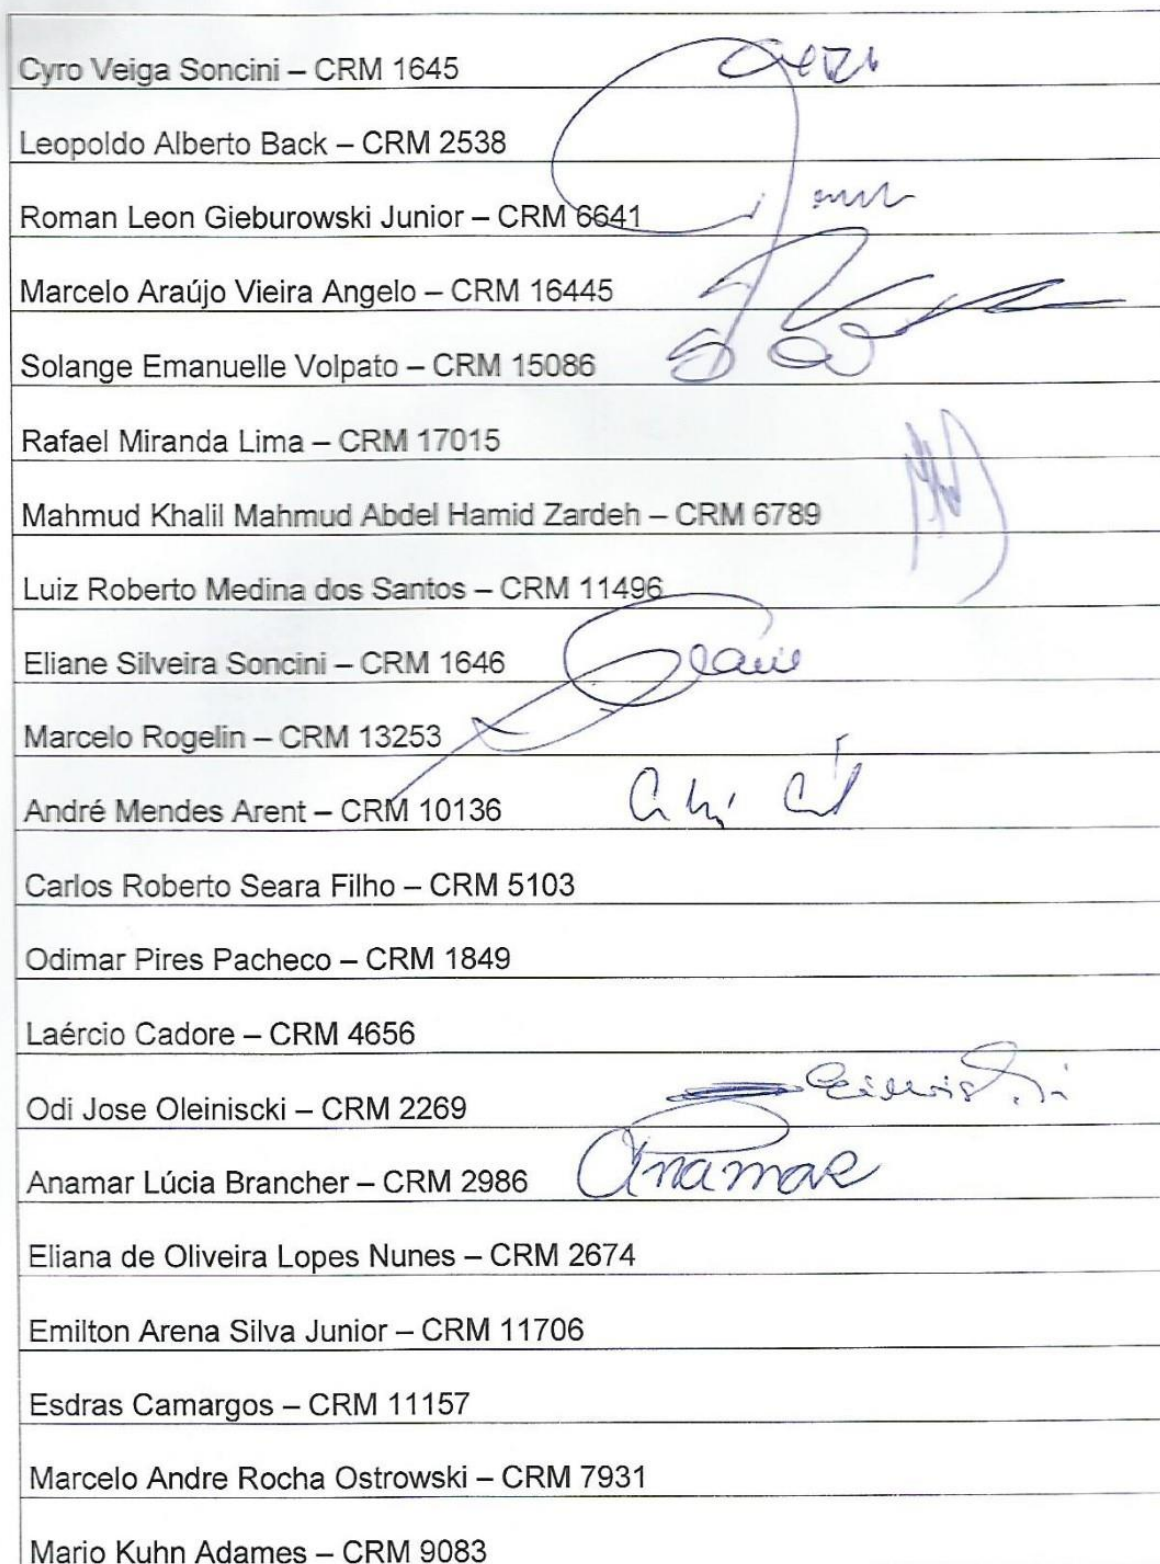 Cyro Veiga Soncini – CRM 1645
Leopoldo Alberto Back – CRM 2538
Roman Leon Gieburowski Junior – CRM 6641
Marcelo Araújo Vieira Angelo – CRM 16445
Solange Emanuelle Volpato – CRM 15086
Rafael Miranda Lima – CRM 17015
Mahmud Khalil Mahmud Abdel Hamid Zardeh – CRM 6789
Luiz Roberto Medina dos Santos – CRM 11496
Eliane Silveira Soncini – CRM 1646
Marcelo Rogelin – CRM 13253
André Mendes Arent – CRM 10136
Carlos Roberto Seara Filho – CRM 5103
Odimar Pires Pacheco – CRM 1849
Laércio Cadore – CRM 4656
Odi Jose Oleiniscki – CRM 2269
Anamar Lúcia Brancher – CRM 2986 Anamar
Eliana de Oliveira Lopes Nunes – CRM 2674
Emilton Arena Silva Junior – CRM 11706
Esdras Camargos – CRM 11157
Marcelo Andre Rocha Ostrowski – CRM 7931
Mario Kuhn Adames – CRM 9083